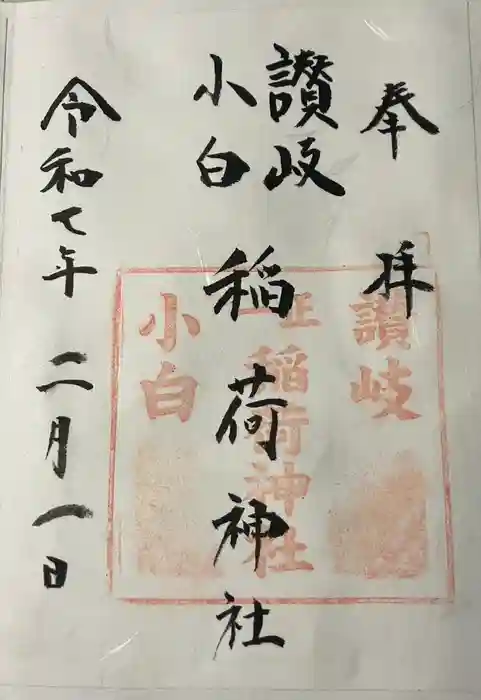 奉拝
讃岐
小白
稲荷神社
令和七年 二月一日
讃岐
正一位
稲荷神社
小白